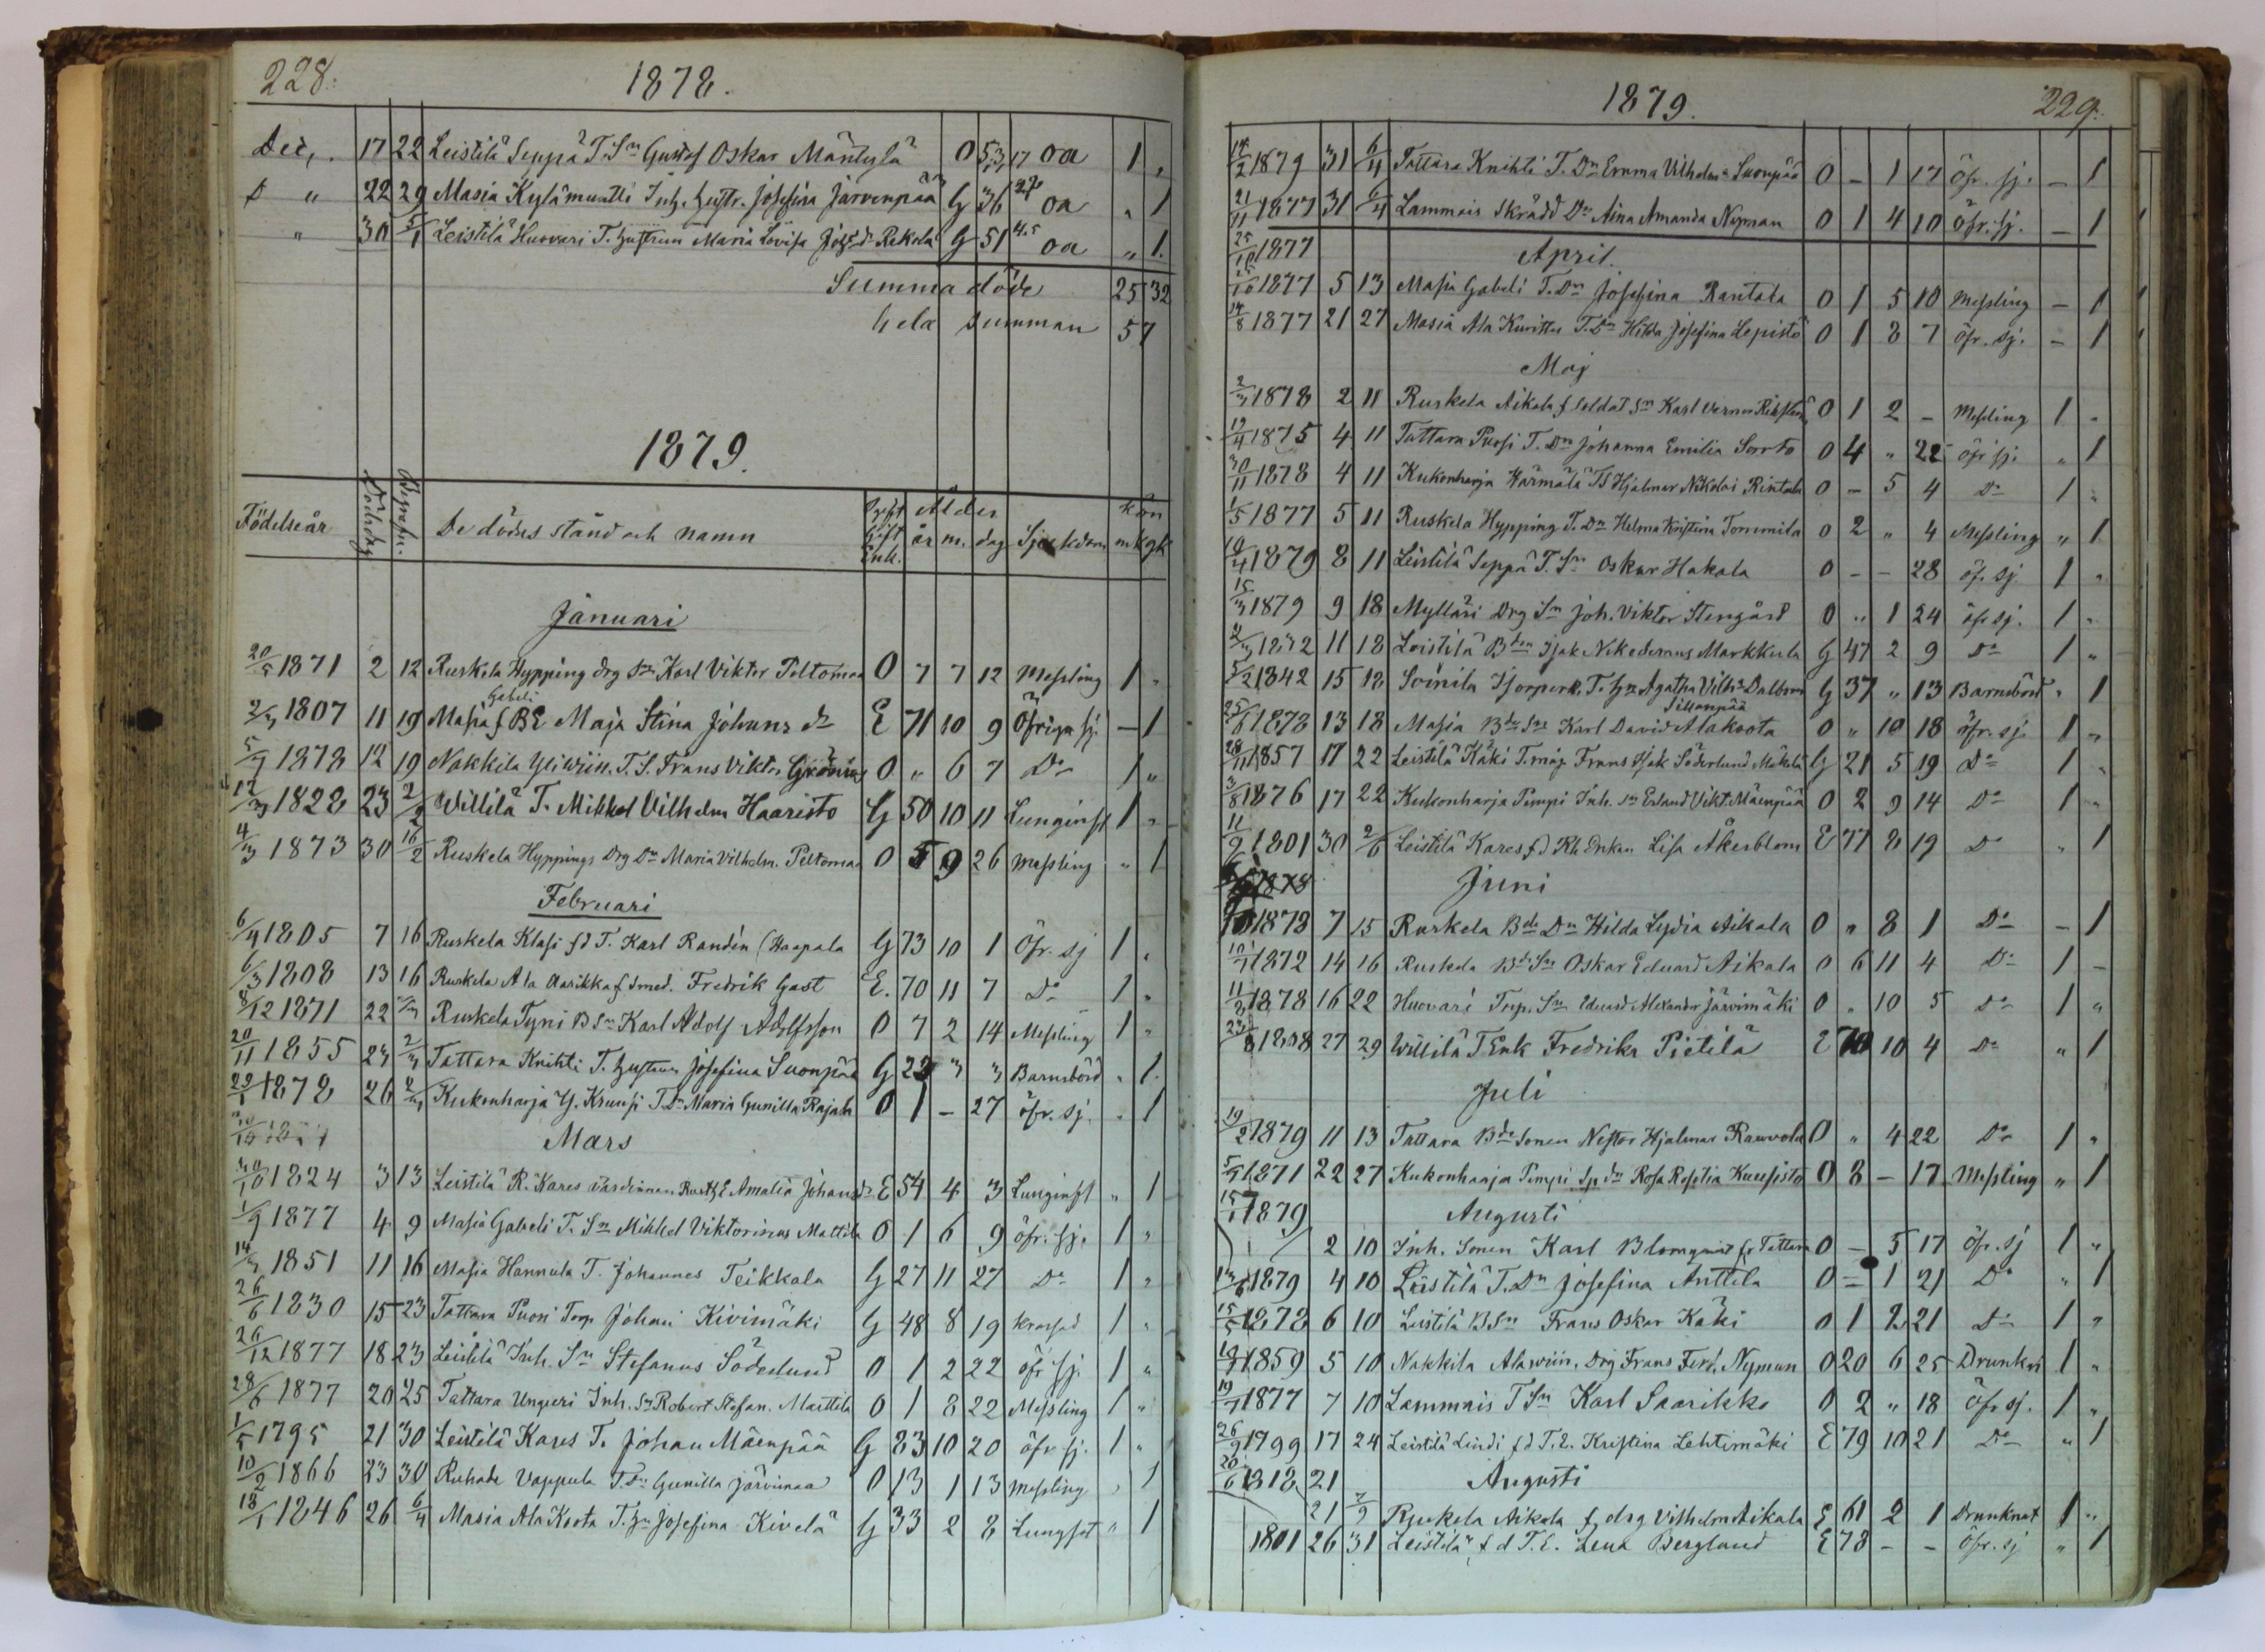 228.
1878.
Dec. 17 22 Leistilä Seppä T. Sn Gustaf Oskar Mäntylä 0 5 3 17 oa 1 "
D " 22 29 Masia Kylämuntti Inh. hustr. Josefina Järvenpää G 36 oa " 1
" 30 5/1 Leistilä Huovari T. hustrun Maria Lovisa Rekola G 51 oa " 1.
Summa döde 25 32
hela summan 57
1879.
Födelseår Dödsdag Begrafn. De dödas stånd och namn Ogift Gift Enk. Ålder år m. dag Sjukdom kön mk qk
Januari
20/5 1871 2 12 Ruskela Hypping drg Sn Karl Viktor Peltomaa O 7 7 12 Messling 1 "
Gabeli
2/3 1807 11 19 Masia f BE Maja Stina Johans dr E 71 10 9 Öfriga sj. – 1
5/7 1878 12 19 Nakkila Yliwiin. T. S. Frans Viktor Grönroos O " 6 7 Do 1 "
12/3 1828 23 2/2 Willilä T. Mikkel Vilhelm Haaristo G 50 10 11 Lunginfl 1 "
4/3 1873 30 16/2 Ruskela Hyppings Drg Dr Maria Vilhelm. Peltomaa O 5 9 26 Messling " 1
Februari
6/4 1805 7 16 Ruskela Klasi fd T. Karl Randén (Haapala G 73 10 1 Öfr. sj 1 "
6/3 1808 13 16 Ruskela Ala Aarikka f Smed. Fredrik Gast E. 70 11 7 Do 1 "
8/12 1871 22 2/3 Ruskela Tyni B Sn Karl Adolf Adolfsson O 7 2 14 Messling 1 "
20/11 1855 23 2/3 Tattara Knihti T. hustrun Josefina Suonpää G 23 3 3 Barnsbörd " 1.
29/1 1878 26 2/3 Kukonharja Y. Kruusi T. Dr Maria Gunilla Rajala O 1 – 27 öfr. sj. " 1
Mars
30/10 1824 3 13 Leistilä R. Kares Amalia Johansdr E 54 4 3 Lunginfl " 1
1/9 1877 4 9 Masia Gabeli T. Sn Mikkel Viktorinus Mattila O 1 6 9 öfr. sj. 1 "
14/3 1851 11 16 Masia Hannula T. Johannes Teikkala G 27 11 27 Do 1 "
26/6 1830 15 23 Tattara Puosi Torp. Johan Kivimäki G 48 8 19 krossad 1 "
26/12 1877 18 23 Leistilä Inh. Sn Stefanus Söderlund O 1 2 22 öfr sj. 1 "
28/6 1877 20 25 Tattara Ungeri Inh. Sn Robert Stefan. Marttila O 1 8 22 Messling 1 "
1/5 1795 21 30 Leistilä Kares T. Johan Mäenpää G 83 10 20 öfr sj. 1 "
10/2 1866 23 30 Ruhade Vappula T. Dr Gunilla Järvinmaa O 13 1 13 Messling " 1
18/1 1846 26 6/4 Masia Ala Koota T. hu Josefina Kivelä G 33 2 8 Lungsot " 1
1879.
229.
14/2 1879 31 6/4 Tattara Knihti T. Dr Emma Vilhelma Suonpää O – 1 17 Öfr. sj. – 1
21/11 1877 31 6/4 Lammais Skrädd Dr Aina Amanda Nyman O 1 4 10 Öfr. sj. – 1
25/10 1877 April.
25/10 1877 5 13 Masia Gabeli T. Dr Josefina Rantala O 1 5 10 Messling – 1
14/8 1877 21 27 Masia Ala Kurittu T. Dr Hilda Josefina Lepistö O 1 8 7 öfr. sj. – 1
Maj
2/3 1878 2 11 Ruskela Aikala f Soldat Sn Karl Verner O 1 2 – Messling 1 "
12/4 1875 4 11 Tattara Puosi T. Dr Johanna Emilia Sorrto O 4 " 22 öfr sj. " 1
30/11 1878 4 11 Kukonharja Härmälä T S Hjalmar Nikolai Rintala O – 5 4 Do 1 "
1/5 1877 5 11 Ruskela Hypping T. Dr Helma Kristina Tommila O 2 " 4 Messling " 1
10/4 1879 8 11 Leistilä Seppä T. Sn Oskar Hakala O – – 28 öf. sj 1 "
15/3 1879 9 18 Mylläri Drg Sn Joh. Viktor Stengård O " 1 24 öfr sj. 1 "
2/3 1832 11 18 Leistilä Bden Isak Nikodemus Markkula G 47 2 9 Do 1 "
5/2 1842 15 18 Soinila T. hu Agatha Vilha Dalbom G 37 " 13 Barnsbörd " 1
Sillanpää
25/6 1878 13 18 Masia Bde Sn Karl David Alakoota O " 10 18 öfr. sj. 1 "
28/11 1857 17 22 Leistilä Käki T. måg Frans Isak Söderlund Mäkelä G 21 5 19 Do 1 "
3/8 1876 17 22 Kukonharja Pimpi Inh. Sn Erland Vikt. Mäenpää O 2 9 14 Do 1 "
11/9 1801 30 2/6 Leistilä Kares fd Enkan Lisa Åkerblom E 77 8 19 Do " 1
Juni
6/10 1878 7 15 Ruskela Bde Dr Hilda Lydia Aikala O " 8 1 Do – 1
10/7 1872 14 16 Ruskela Bde Sn Oskar Eduard Aikala O 6 11 4 Do 1 –
11/8 1878 16 22 Huovari Torp. Sn Eduard Alexander Järvimäki O " 10 5 Do 1 "
23/8 1808 27 29 Willilä T Enk Fredrika Pietilä E 70 10 4 Do " 1
Juli
19/2 1879 11 13 Tattara Bde Sonen Nestor Hjalmar Rauvola O " 4 22 Do 1 "
5/7 1871 22 27 Kukonharja Pimpi Dr Rosa Rosilia Kuusisto O 8 – 17 Messling " 1
15/1 1879 Augusti
2 10 Inh. Sonen Karl Blomqvist fr Tattara O – 5 17 öfr. sj 1 "
13/6 1879 4 10 Leistilä T. Dr Josefina Anttila O – 1 21 Do " 1
15/5 1878 6 10 Leistilä B Sn Frans Oskar Käki O 1 2 21 Do 1 "
10/1 1859 5 10 Nakkila Alawiin. Drg Frans Ferd. Nyman O 20 6 25 Drunkn 1 "
19/7 1877 7 10 Lammais T Sn Karl Saarikko O 2 " 18 öfr sj. 1 "
26/9 1799 17 24 Leistilä Lindi fd T. E. Kristina Lehtimäki E 79 10 21 Do " 1
20/6 1818 21 Augusti
21 7/9 Ruskela Aikala f drg Vilhelm Aikala E 61 2 1 Drunknat 1 "
1801 26 31 Leistilä f d T. E. Lena Berglund E 78 – – öfr. sj " 1